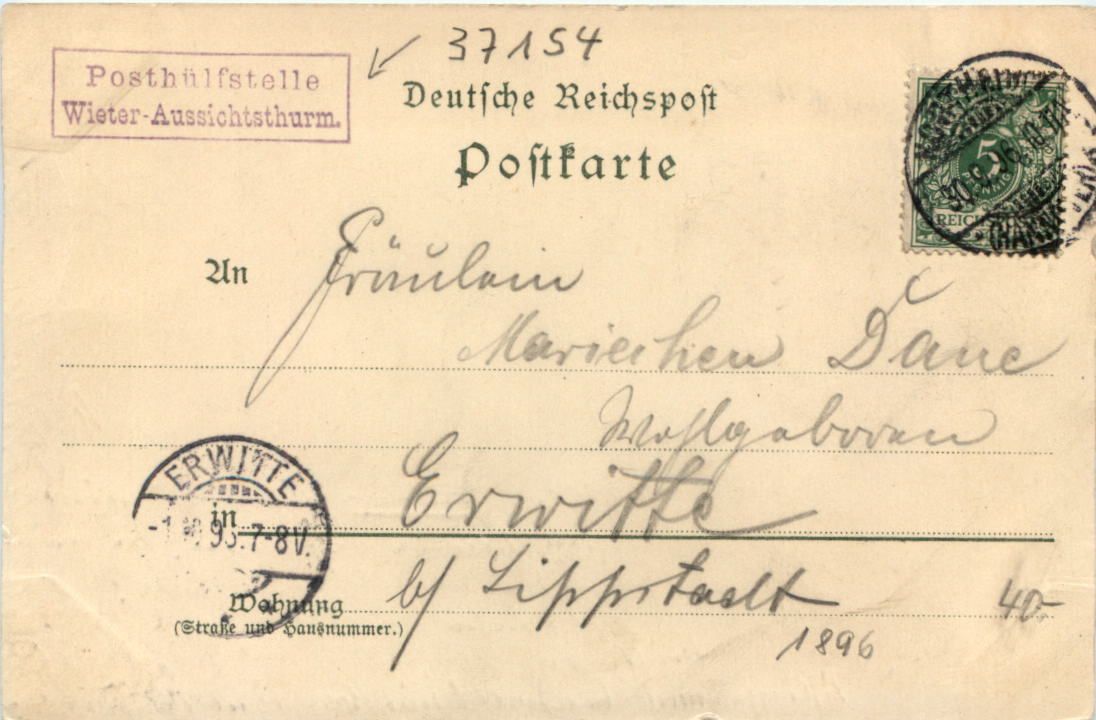 37154
Posthülfstelle
Wieter-Aussichtsthurm.
Deutsche Reichspost
Postkarte
5
PFENNIG
REICHSPOST
30.9.96.
(HANNOVER)
An Fräulein
Mariechen Dane
Wohlgeboren
ERWITTE
7-8V.
in Erwitte
b/ Lippstadt
Wohnung
(Straße und Hausnummer.)
40-
1896